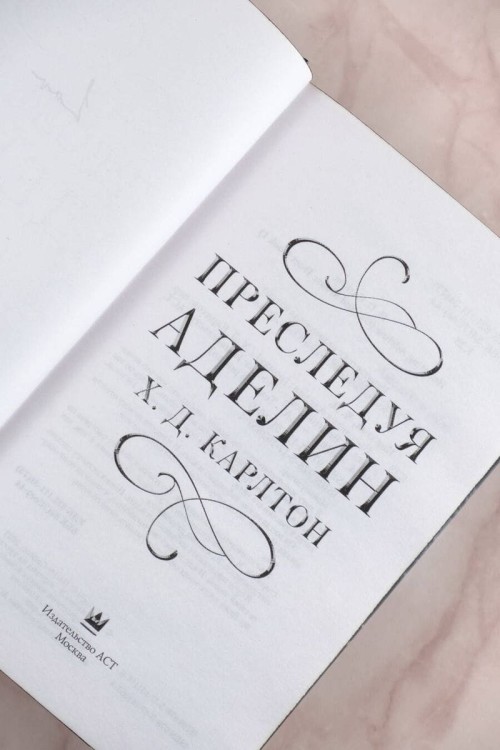 ПРЕСЛЕДУЯ
АДЕЛИН
Х. Д. КАРЛТОН
Издательство АСТ
Москва